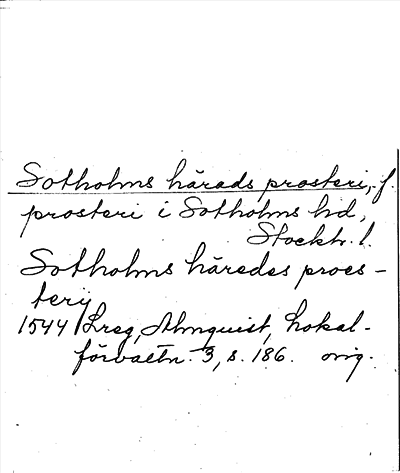 Sotholms härads prosteri, f.
prosteri i Sotholms hd,
Stockh. l.
Sotholms häredes proes-
terij
1544 Lreg, Almquist, Lokal-
förvaltn. 3, s. 186. orig.